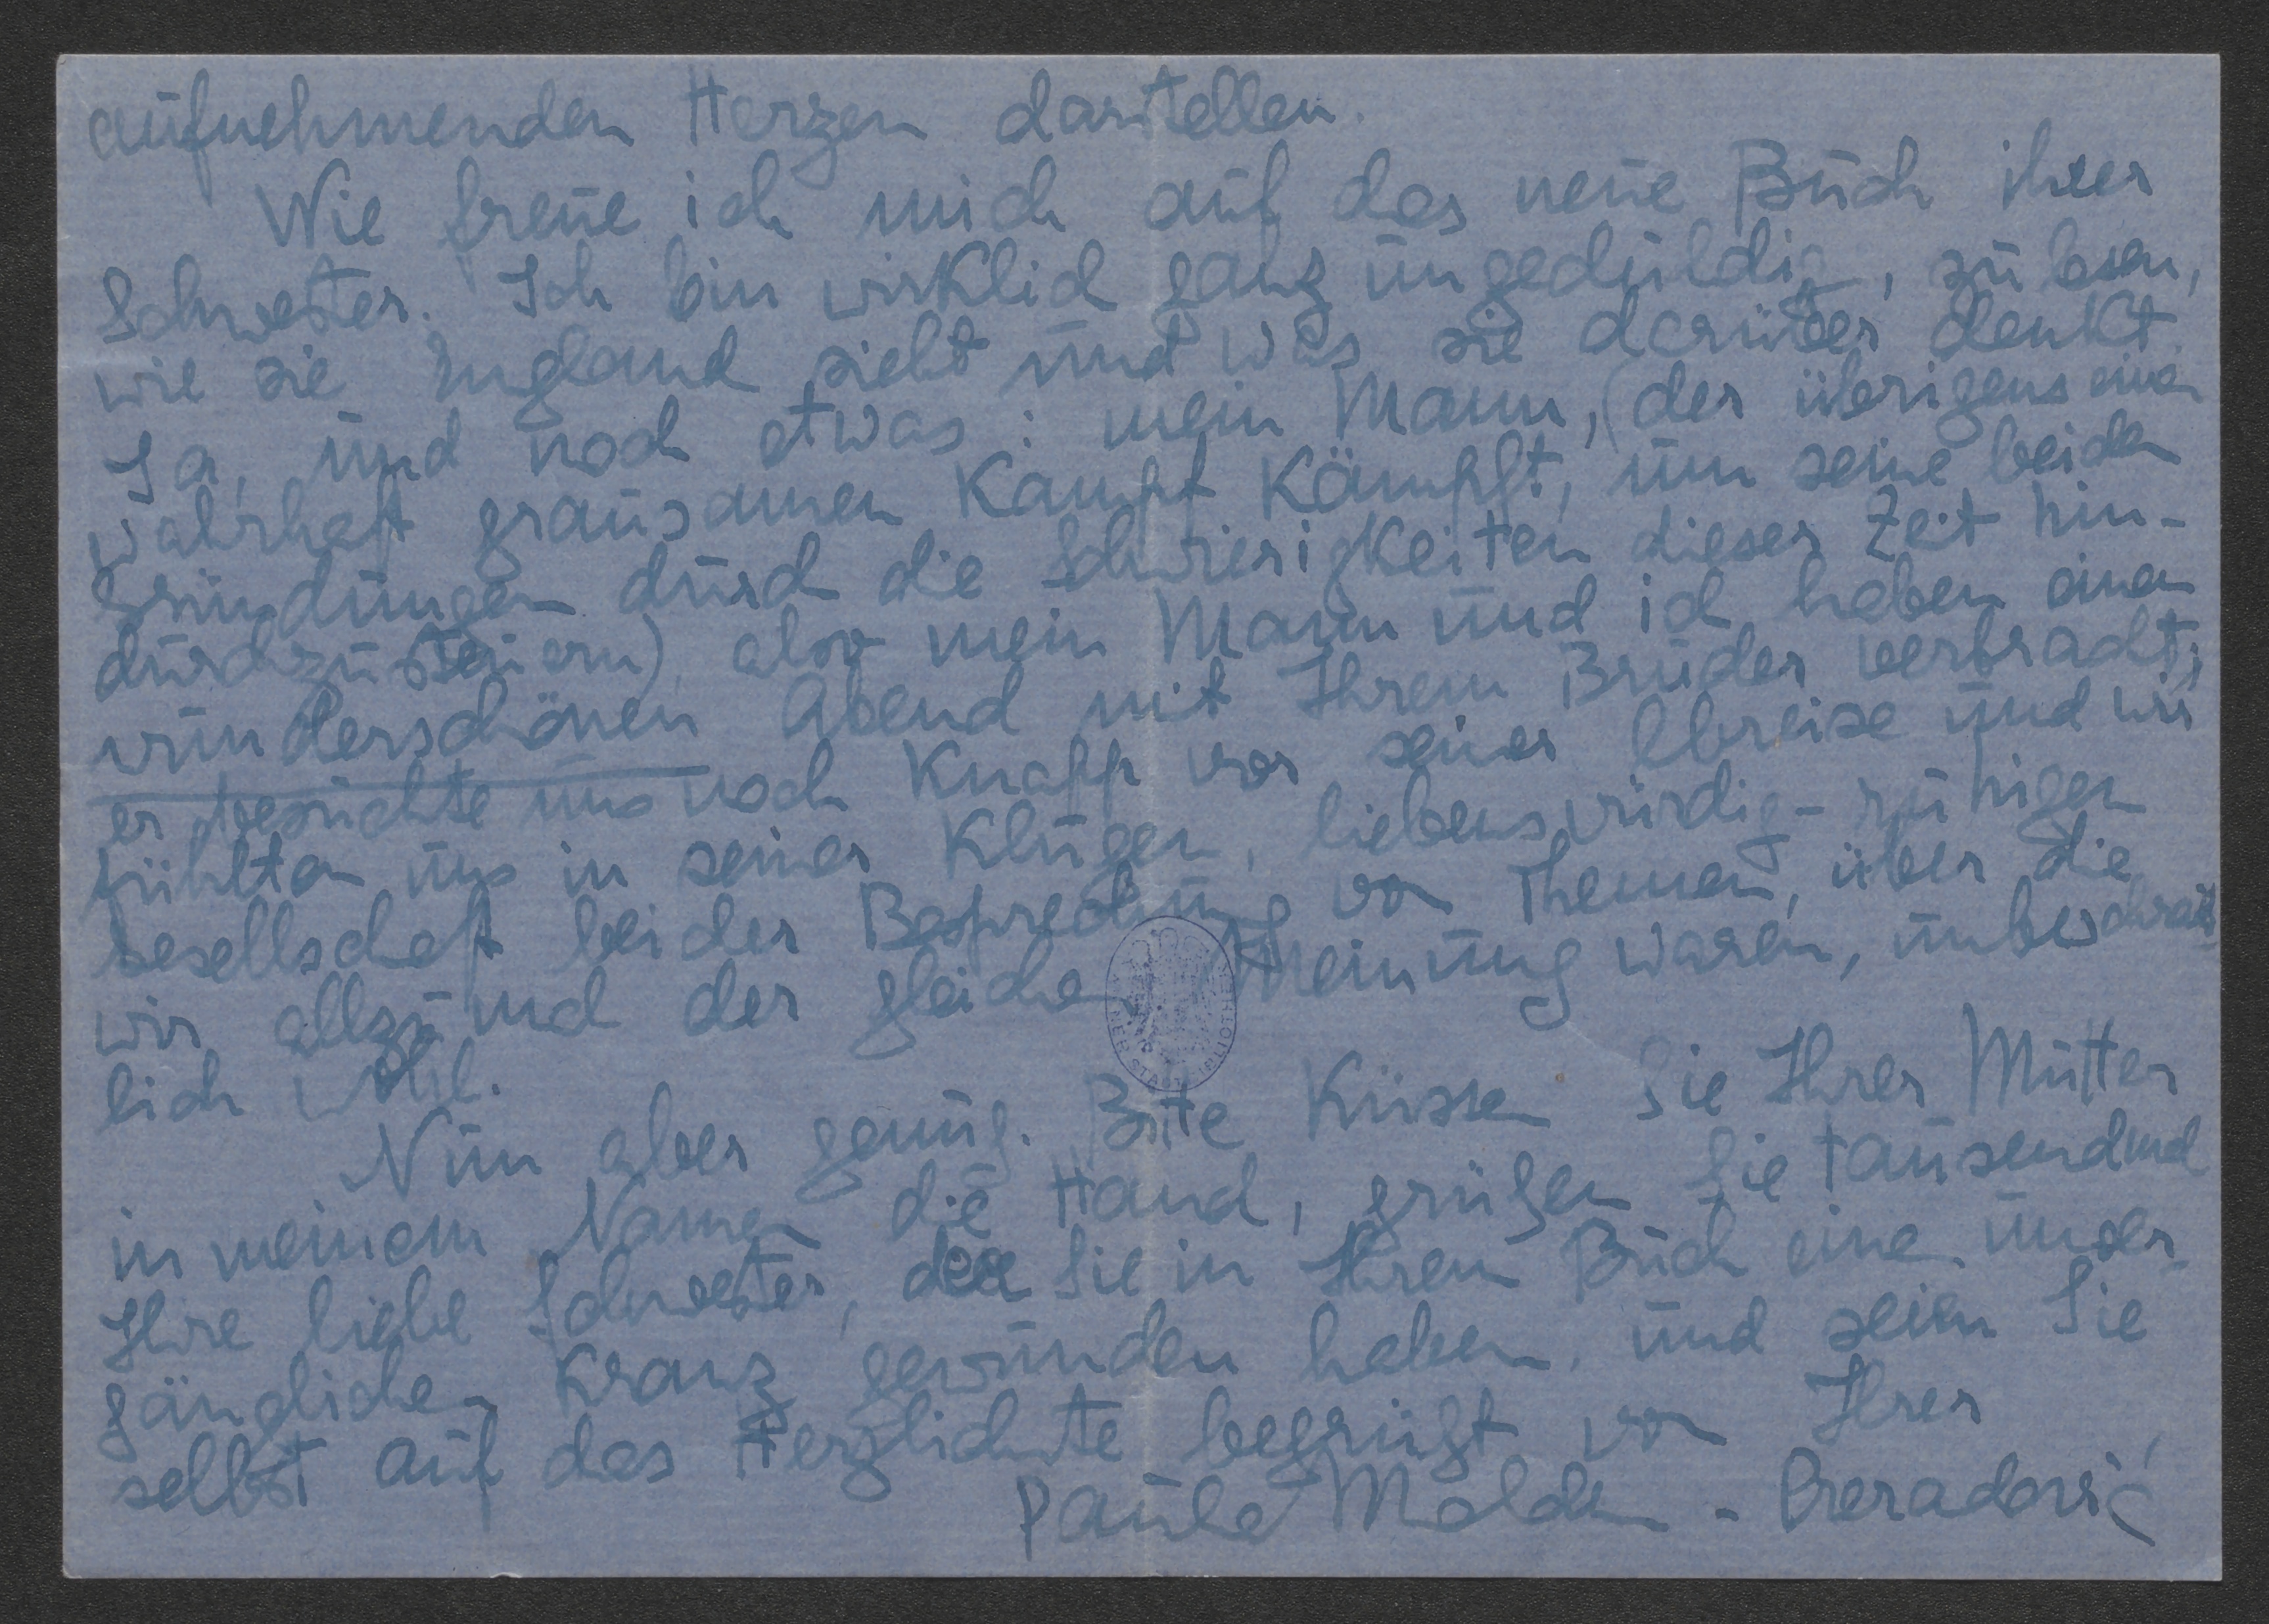 aufnehmenden Herzen darstellen.
Wie freue ich mich auf das neue Buch ihrer
Schwester. Ich bin wirklich ganz ungeduldig, zu lesen,
wie sie England sieht und was sie darüber denkt.
Ja, und noch etwas: mein Mann, (der übrigens einen
wahrhaft grausamen Kampf kämpft, um seine beiden
Gründungen durch die Schwierigkeiten dieser Zeit hin-
durchzusteuern), also mein Mann und ich haben einen
wunderschönen Abend mit Ihrem Bruder verbracht,
er besuchte uns noch knapp vor seiner Abreise und wir
fühlten uns in seiner klugen, liebenswürdig-ruhigen
Gesellschaft bei der Besprechung von Themen, über die
wir allzumal der gleichen Meinung waren, unbeschreib-
lich wohl.
Nun aber genug. Bitte küssen Sie Ihrer Mutter
in meinem Namen die Hand, grüßen Sie tausendmal
Ihre liebe Schwester, der Sie in Ihrem Buch eine unver-
gänglichen Kranz gewunden haben, und seien Sie
selbst auf das Herzlichste begrüßt von Ihrer
Paula Molden-Preradović